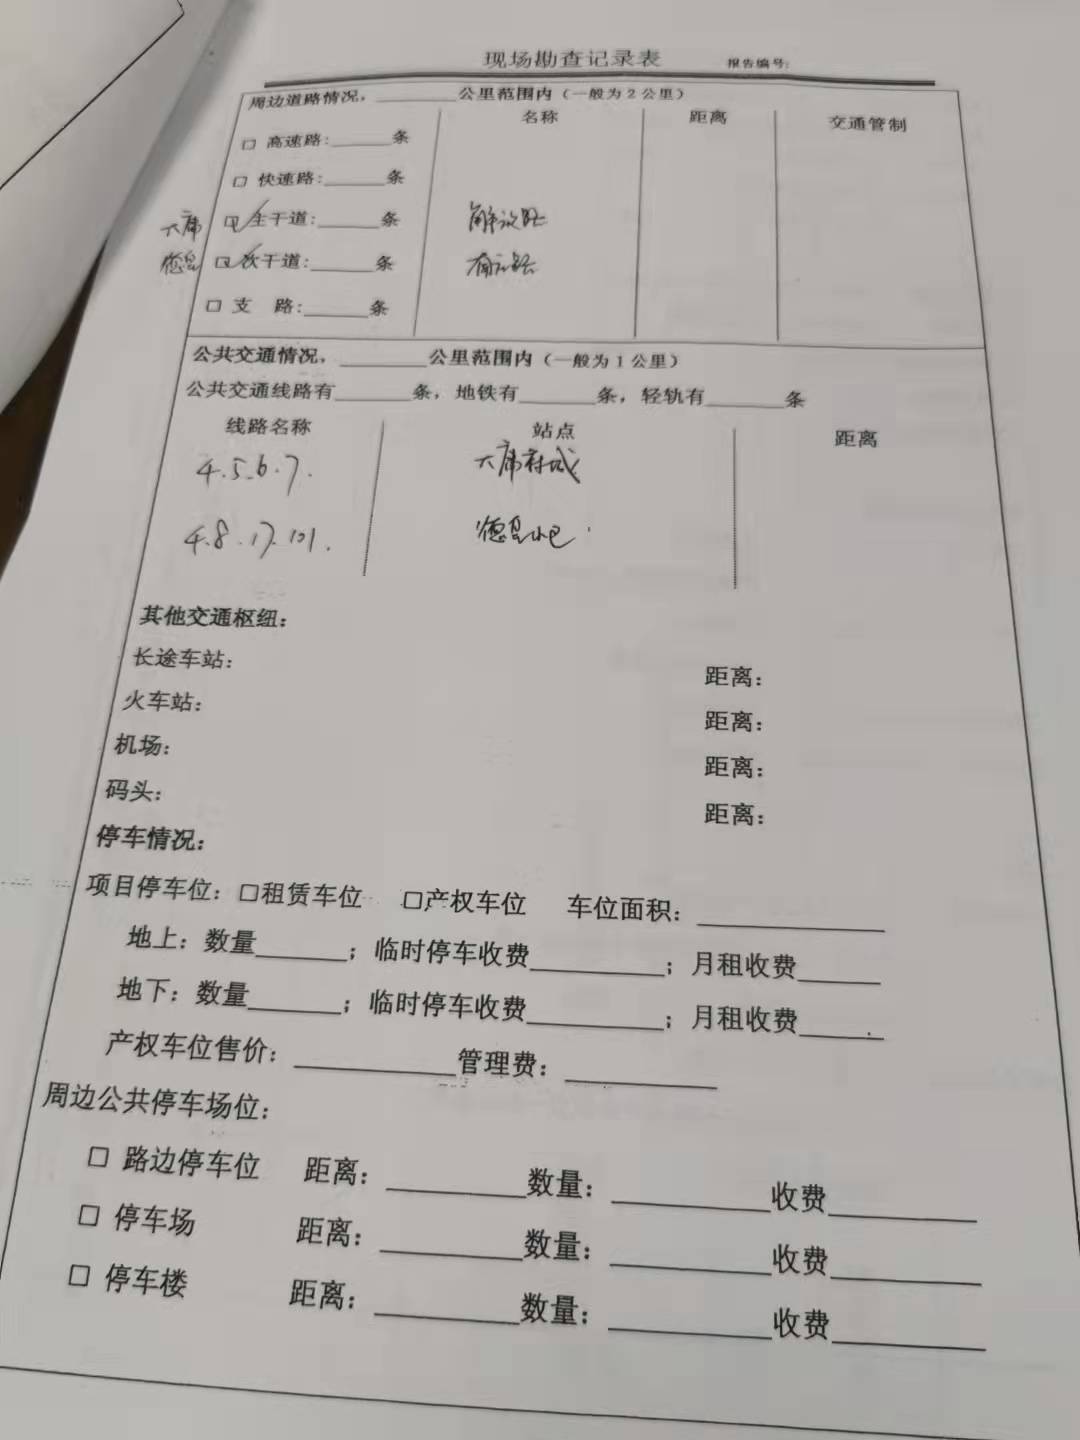 现场勘查记录表 报告编号:
周边道路情况，______公里范围内（一般为2公里）
名称 距离 交通管制
□ 高速路:______条
□ 快速路:______条
大席 ☑ 主干道:______条 解放路
德昌 ☑ 次干道:______条
□ 支 路:______条
公共交通情况，______公里范围内（一般为1公里）
公共交通线路有______条，地铁有______条，轻轨有______条
线路名称 站点 距离
4.5.6.7. 大席
4.8.17.101.
其他交通枢纽：
长途车站： 距离：
火车站： 距离：
机场： 距离：
码头： 距离：
停车情况：
项目停车位：□租赁车位 □产权车位 车位面积：______
地上：数量______；临时停车收费______；月租收费______
地下：数量______；临时停车收费______；月租收费______
产权车位售价：______管理费：______
周边公共停车场位：
□ 路边停车位 距离：______数量：______收费______
□ 停车场 距离：______数量：______收费______
□ 停车楼 距离：______数量：______收费______